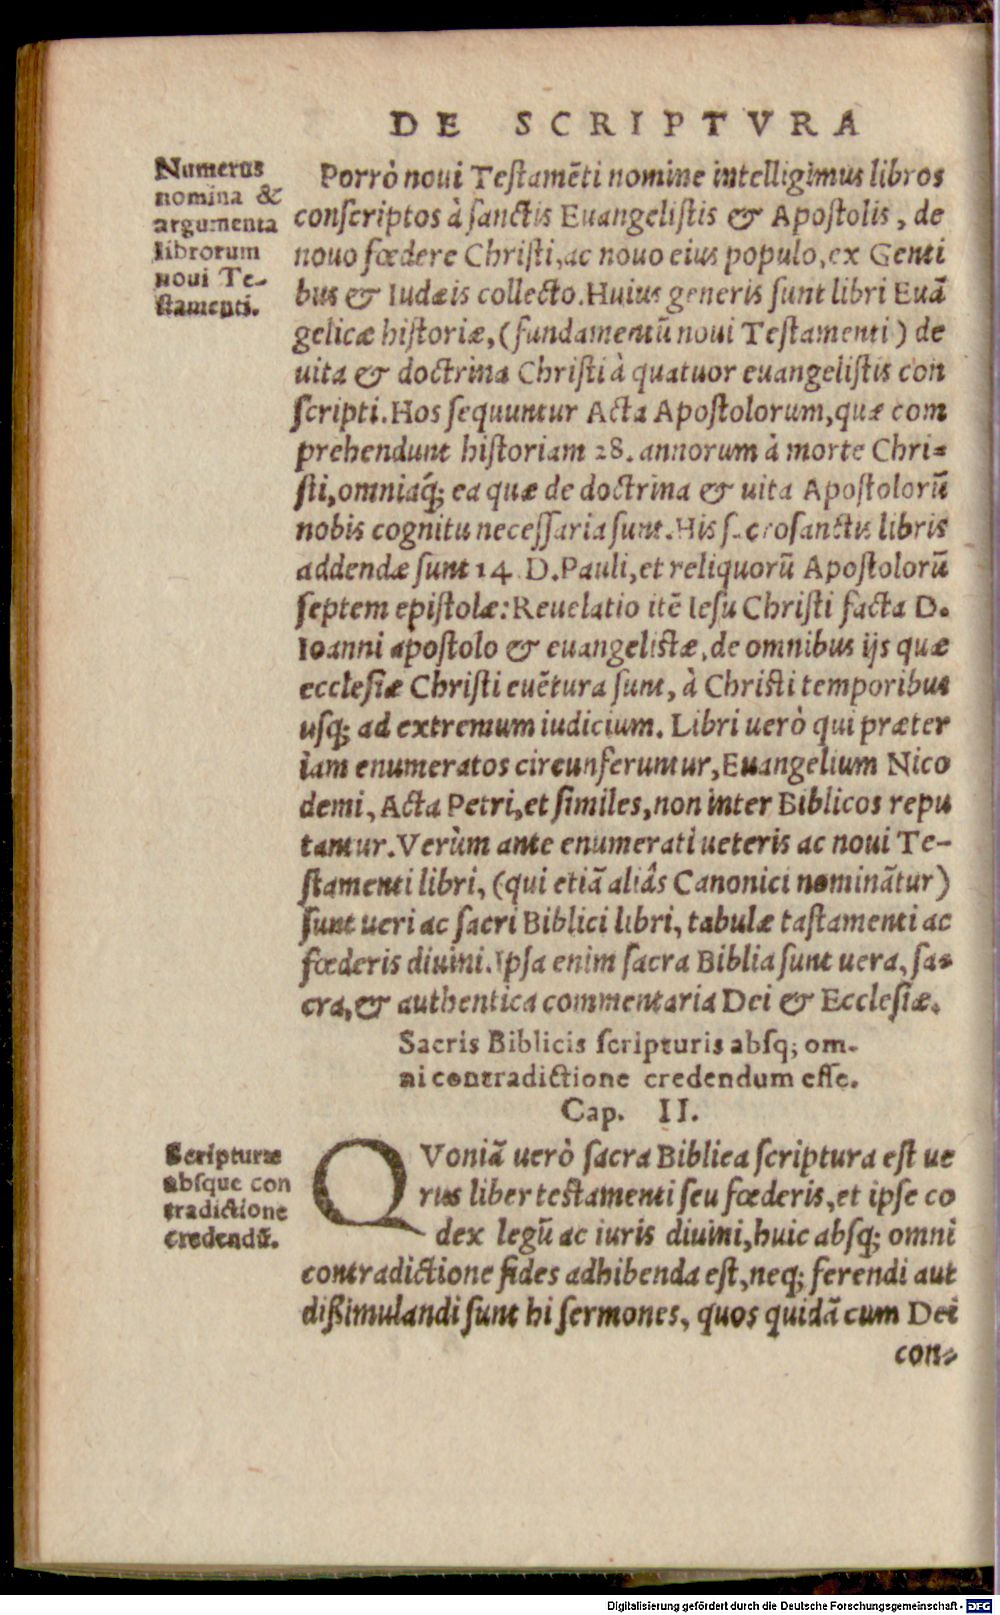 DE SCRIPTVRA
Numerus
nomina &
argumenta
librorum
noui Te-
stamenti.
Porrò noui Testamẽti nomine intelligimus libros
conscriptos à sanctis Euangelistis & Apostolis, de
nouo fœdere Christi, ac nouo eius populo, ex Genti
bus & Iudæis collecto. Huius generis sunt libri Euã
gelicæ historiæ, (fundamentũ noui Testamenti) de
uita & doctrina Christi à quatuor euangelistis con
scripti. Hos sequuntur Acta Apostolorum, quæ com
prehendunt historiam 28. annorum à morte Chri-
sti, omniaq́; ea quæ de doctrina & uita Apostolorũ
nobis cognitu necessaria sunt. His sacrosanctis libris
addendæ sunt 14. D. Pauli, et reliquorũ Apostolorũ
septem epistolæ: Reuelatio itẽ Iesu Christi facta D.
Ioanni apostolo & euangelistæ, de omnibus ijs quæ
ecclesiæ Christi euẽtura sunt, à Christi temporibus
usq; ad extremum iudicium. Libri uerò qui præter
iam enumeratos circunferuntur, Euangelium Nico
demi, Acta Petri, et similes, non inter Biblicos repu
tantur. Verùm ante enumerati ueteris ac noui Te-
stamenti libri, (qui etiã aliâs Canonici nominãtur)
sunt ueri ac sacri Biblici libri, tabulæ tastamenti ac
fœderis diuini. Ipsa enim sacra Biblia sunt uera, sa-
cra, & authentica commentaria Dei & Ecclesiæ.
Sacris Biblicis scripturis absq; om-
ni contradictione credendum esse.
Cap. II.
Scripturæ
absque con
tradictione
credendũ.
QVoniã uerò sacra Biblica scriptura est ue
rus liber testamenti seu fœderis, et ipse co
dex legũ ac iuris diuini, huic absq; omni
contradictione fides adhibenda est, neq; ferendi aut
dißimulandi sunt hi sermones, quos quidã cum Dei
con-
Digitalisierung gefördert durch die Deutsche Forschungsgemeinschaft - DFG